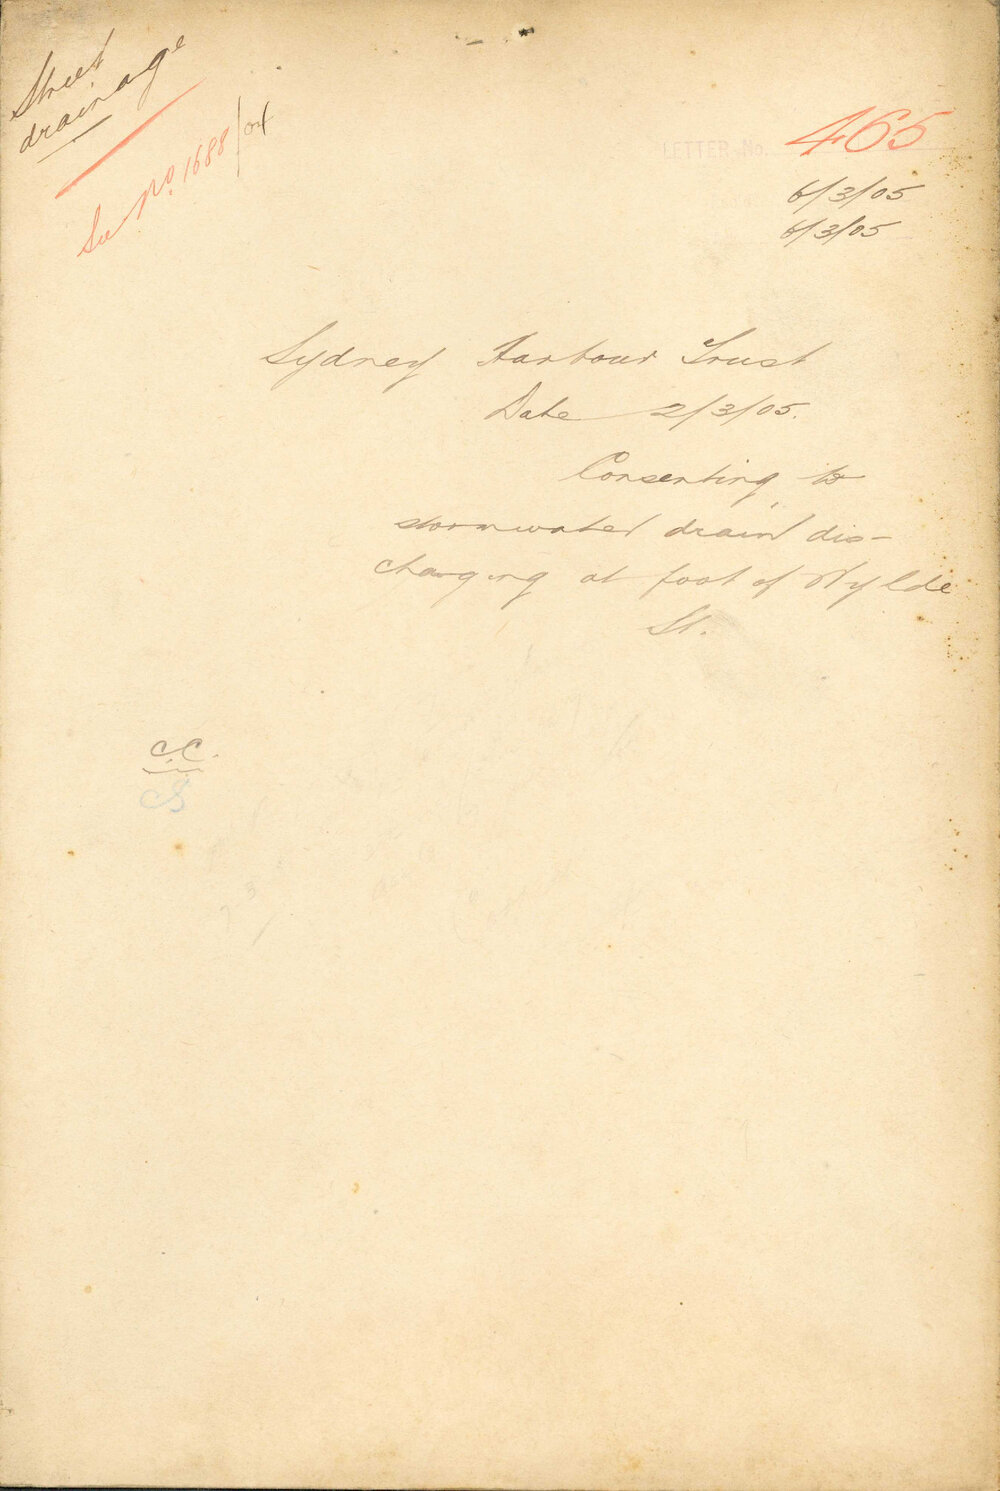 Street
drainage
See No. 1688/04
LETTER No. 465
6/3/05
6/3/05
Sydney Harbour Trust
Date 2/3/05.
Consenting to
stormwater drain dis-
charging at foot of Wylde
St.
C.C.